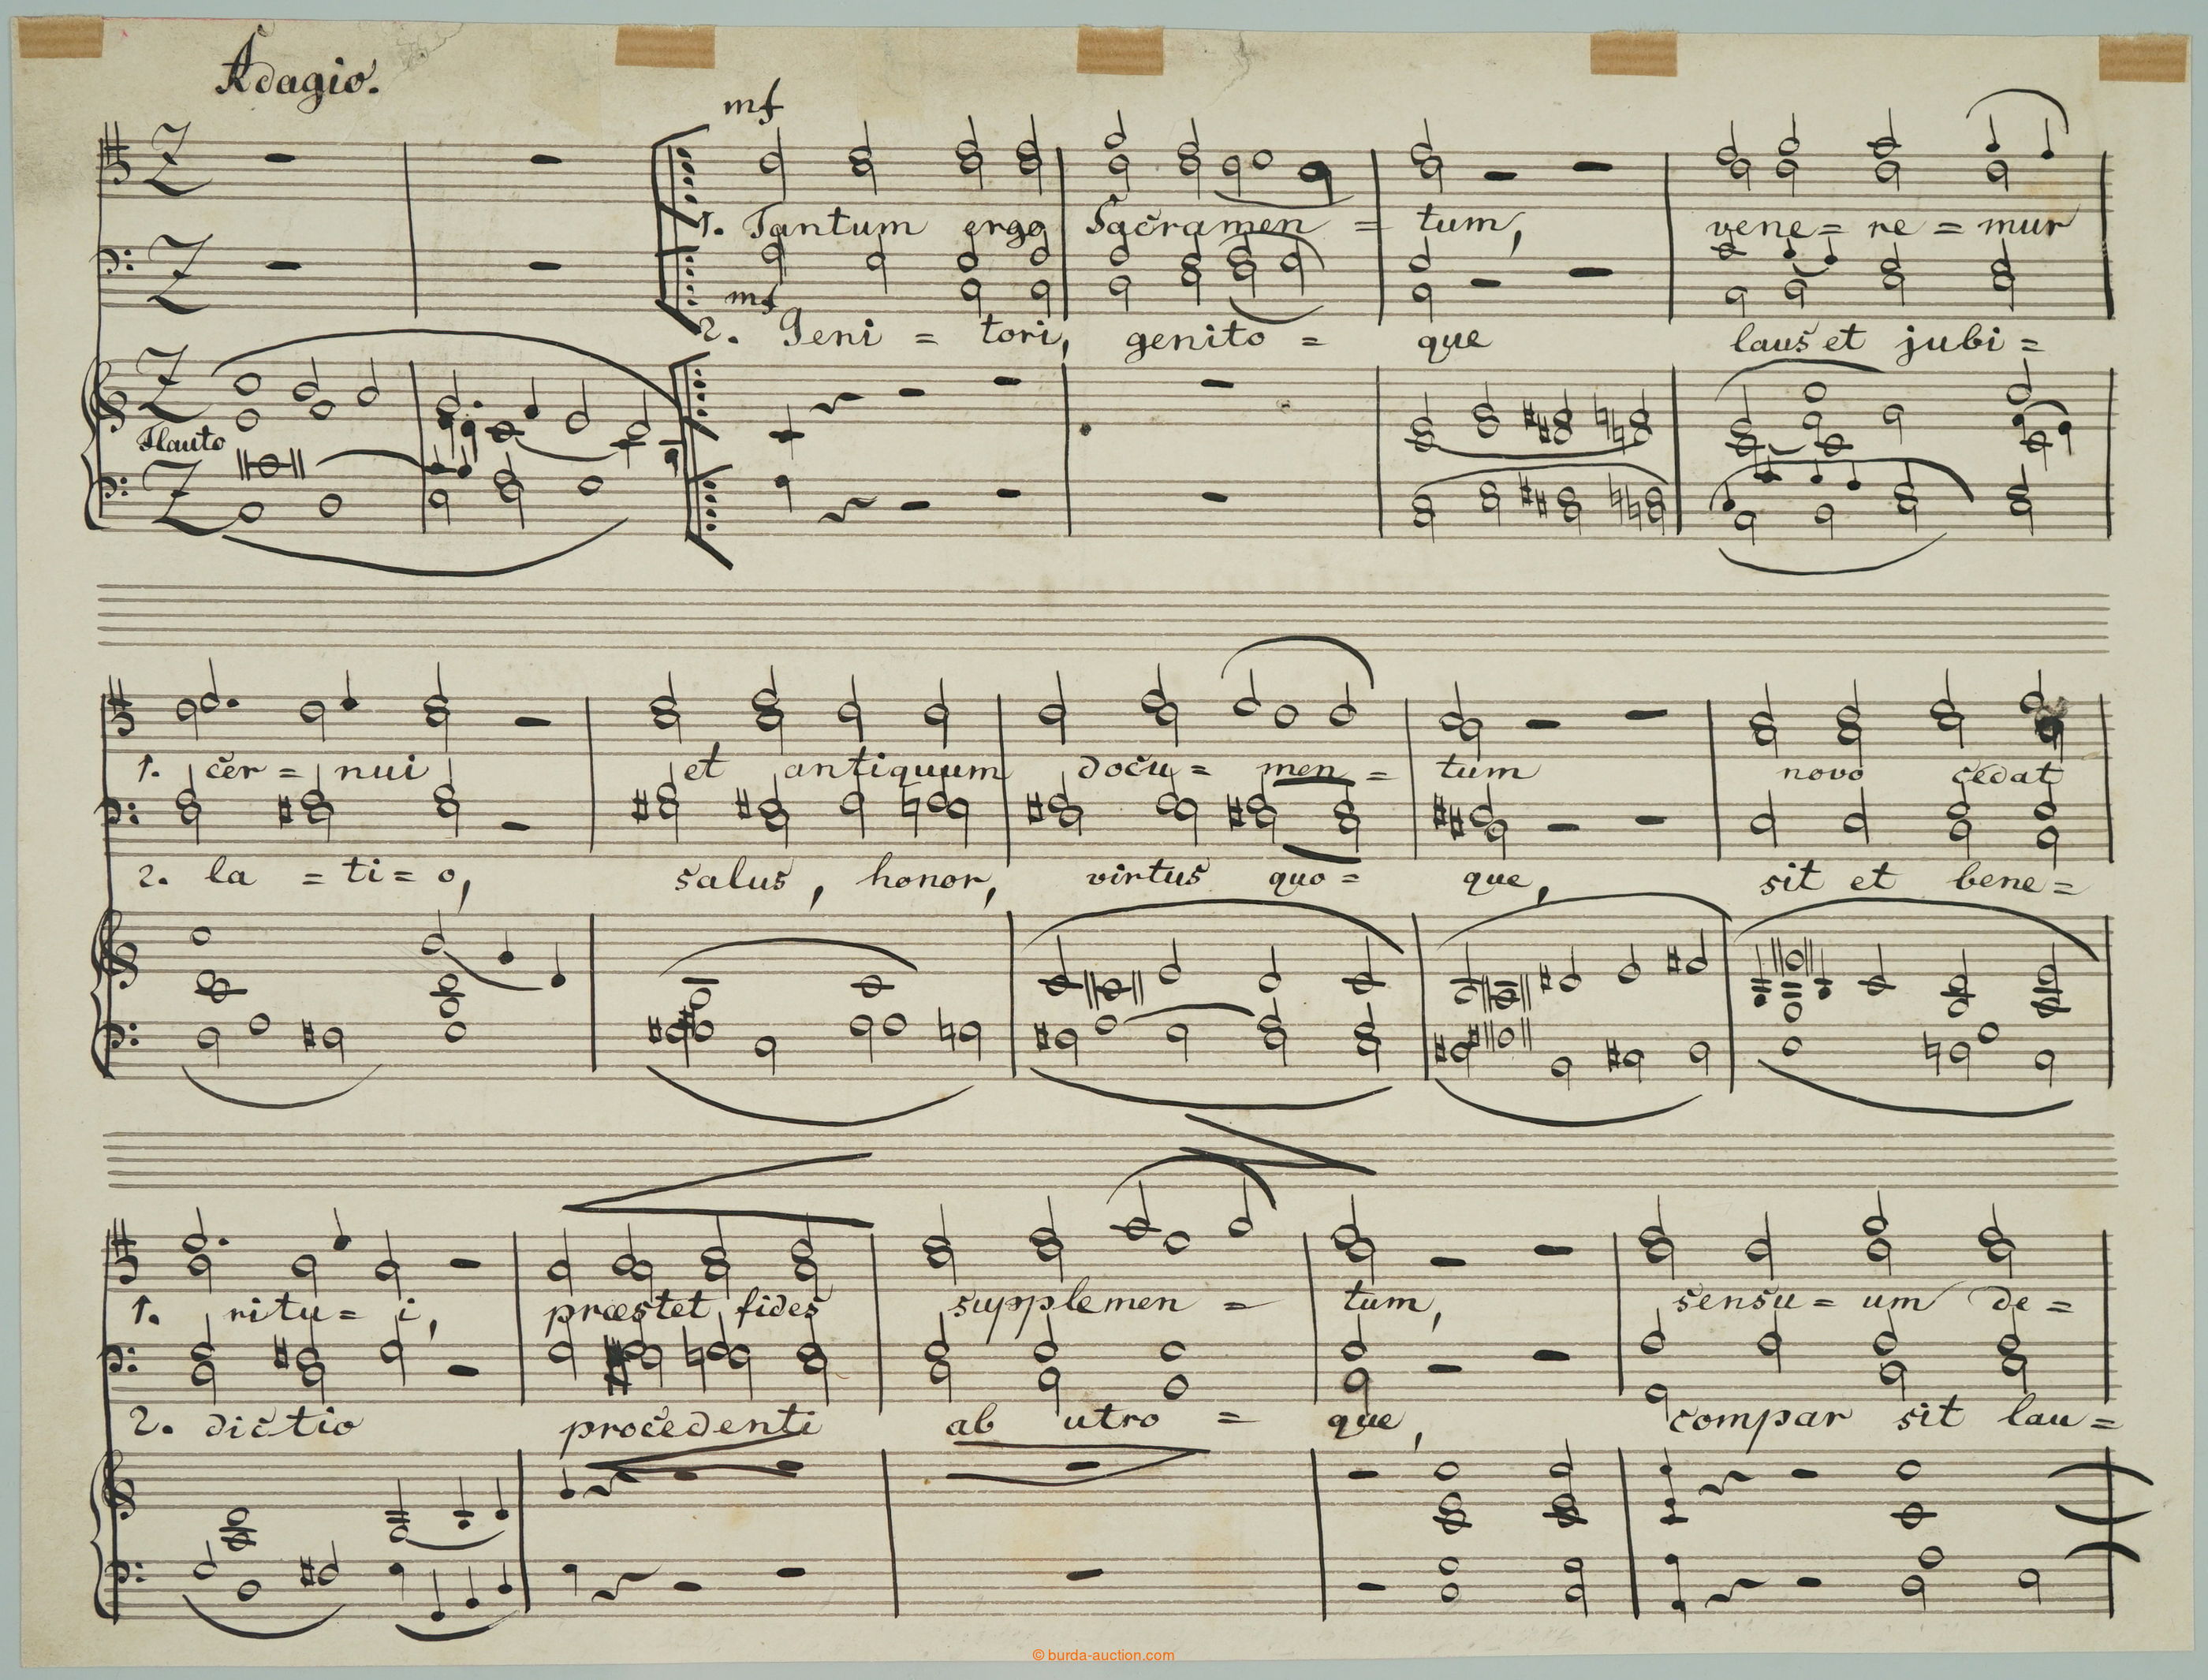 Adagio.
mf
1. Tantum ergo Sacramen = tum, vene = re = mur
mf
2. Geni = tori, genito = que laus et jubi =
Flauto
1. cer = nui et antiquum docu = men = tum novo cedat
2. la = ti = o, salus, honor, virtus quo = que, sit et bene =
1. ritu = i, præstet fides supplemen = tum, sensu = um de =
2. dictio procedenti ab utro = que, compar sit lau =
© burda-auction.com